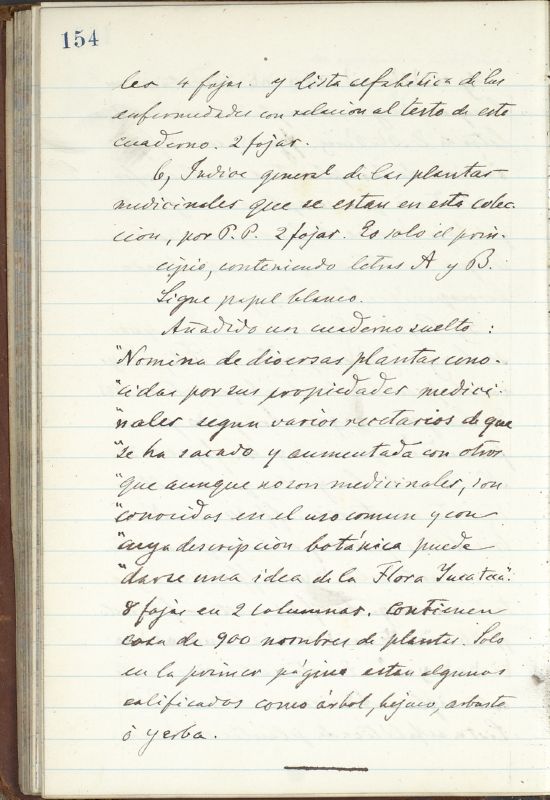 154
les 4 fojas. y lista alfabética de las
enfermedades con relacion al testo de este
cuaderno. 2 fojas.
6, Indice general de las plantas
medicinales que se estan en esta colec-
cion, por P. P. 2 fojas. Es solo el prin-
cipio, conteniendo letras A y B.
Sigue papel blanco.
Añadido un cuaderno suelto :
"Nomina de diversas plantas cono-
"cidas por sus propiedades medici-
"nales segun varios recetarios de que
"se ha sacado y aumentada con otros
"que aunque no son medicinales, son
"conocidas en el uso comun y con
"cuya descripcion botánica puede
"darse una idea de la Flora Yucatan".
8 fojas en 2 columnas. Contienen
cosa de 900 nombres de plantas. Solo
en la primer página estan algunas
calificados como árbol, bejuco, arbusto
ó yerba.